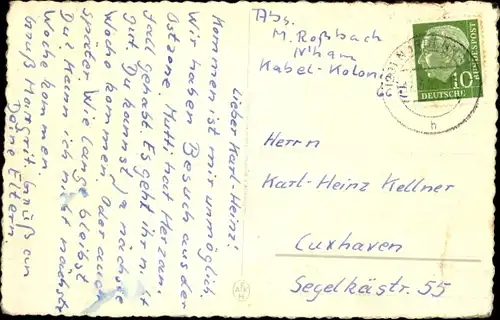 Lieber Karl-Heinz!
Kommen ist mir unmöglich.
Wir haben Besuch aus der
Ostzone. Mutti hat Herzan-
fall gehabt. Es geht ihr n. st
gut. Du kannst ja nächste
Woche kommen. Oder auch
später. Wie lange bleibst
Du? Kann ich nicht nächste
Woche kommen.
Gruß Margrit. Gruß an
Deine Eltern
Abs.
M. Roßbach
N'ham
Kabel-Kolonie
10
DEUTSCHE
BUNDESPOST
h
Herrn
Karl-Heinz Kellner
Cuxhaven
Segelkästr. 55